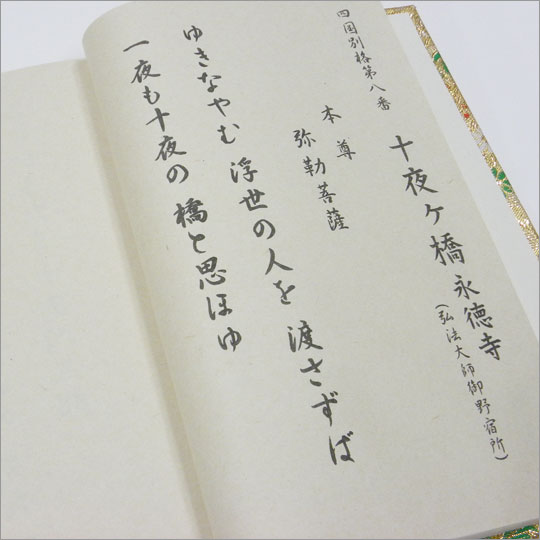 四国別格第八番
十夜ヶ橋永徳寺
(弘法大師御野宿所)
本尊
弥勒菩薩
ゆきなやむ 浮世の人を 渡さずば
一夜も十夜の 橋と思ほゆ